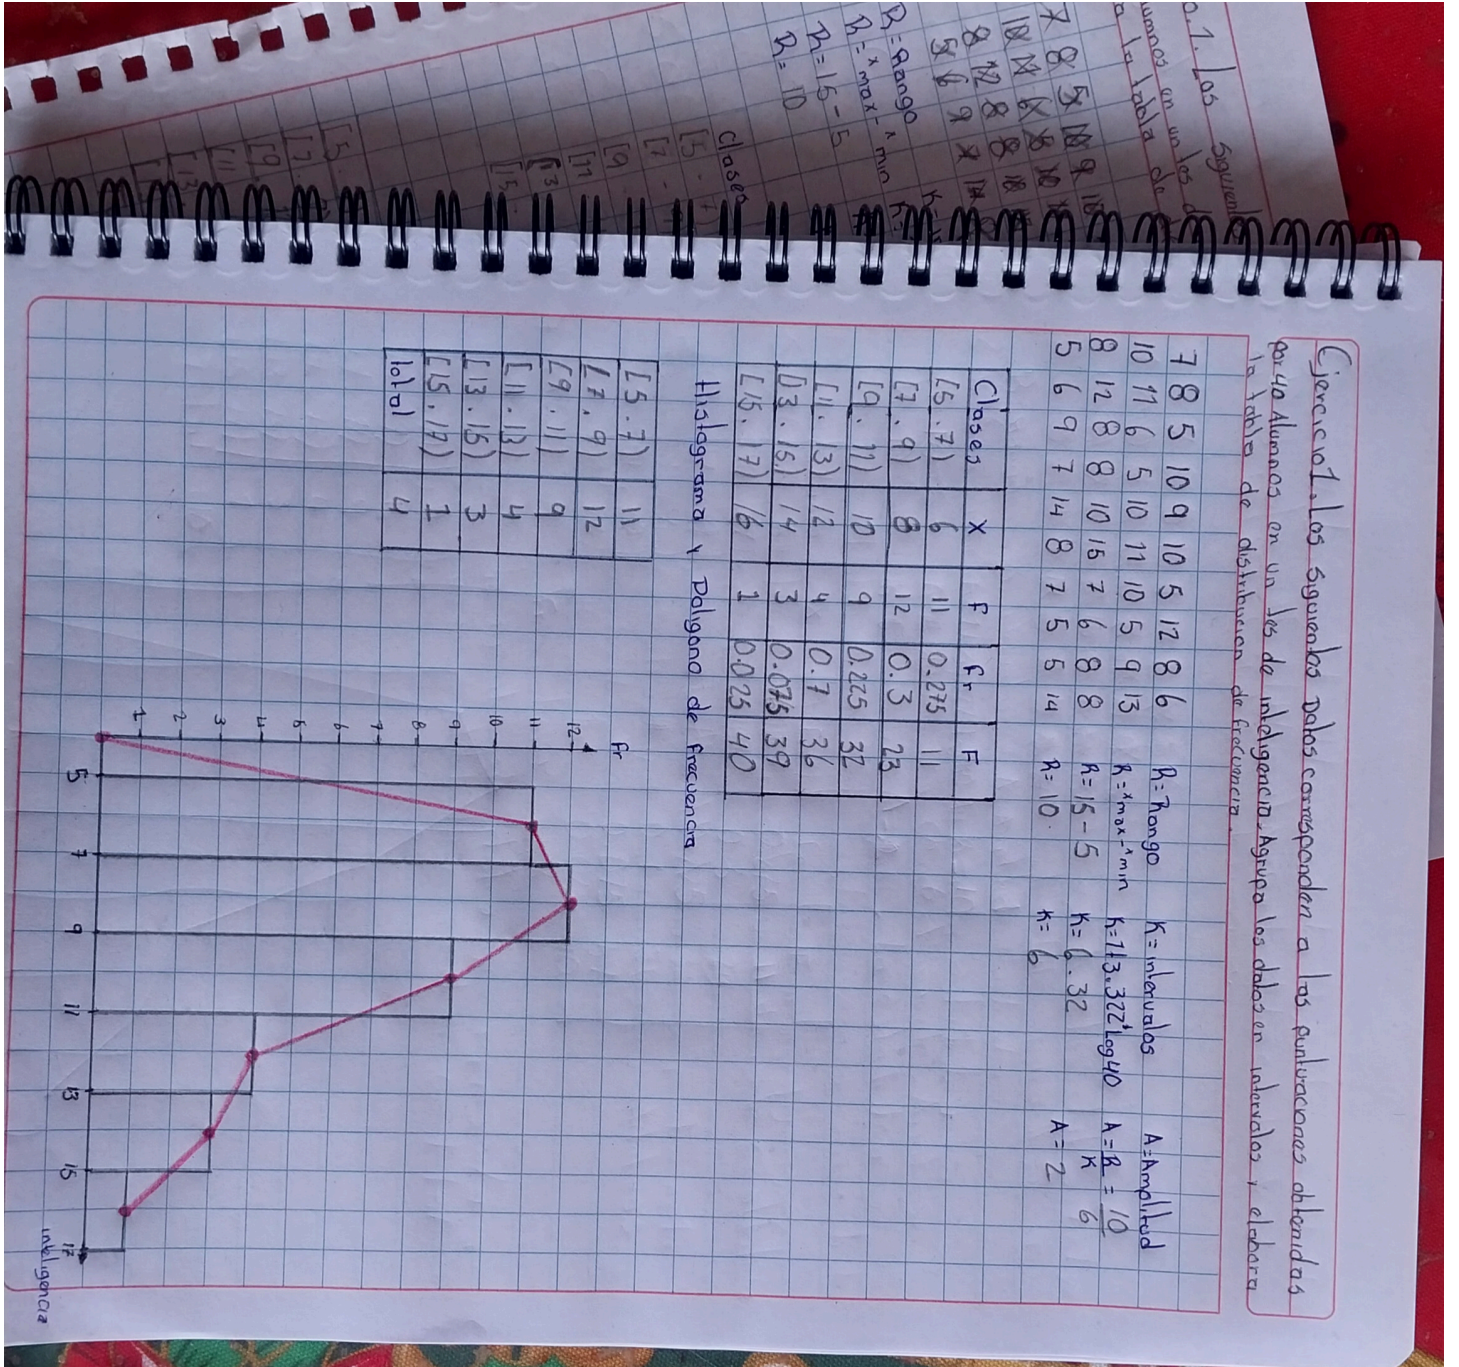 Ejercicio 1. Los siguientes Datos corresponden a las puntuaciones obtenidas
por 40 Alumnos en un les de inteligencia. Agrupa los datos en intervalos y elabora
la tabla de distribucion de frecuencia.
7 8 5 10 9 10 5 12 8 6
10 11 6 5 10 11 10 5 9 13
8 12 8 8 10 15 7 6 8 8
5 6 9 7 14 8 7 5 5 14
R=Rango
R=xmax-xmin
R=15-5
R=10.
K=intervalos
K=1+3.322*Log40
K=6.32
K=6
A=Amplitud
A=R/K=10/6
A=2
Clases X F fr F
[5.7) 6 11 0.275 11
[7.9) 8 12 0.3 23
[9.11) 10 9 0.225 32
[11.13) 12 4 0.7 36
[13.15) 14 3 0.075 39
[15.17) 16 1 0.025 40
Histograma y Poligono de frecuencia
[5.7) 11
[7.9) 12
[9.11) 9
[11.13) 4
[13.15) 3
[15.17) 1
total 4
fr
12
11
10
9
8
7
6
5
4
3
2
1
5 7 9 11 13 15 17
inteligencia
o.1. Los siguiente
umnos en un los d
a la tabla de
R=Rango
R=xmax-xmin
R=15-5
R=10
Clases
[5.
[7.
[9
[11
[13
[15
[5.
[7.
[9
[11
[13